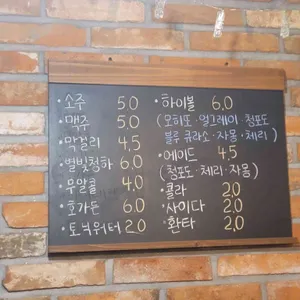 ·소주 5.0
·맥주 5.0
·막걸리 4.5
·별빛청하 6.0
·무알콜 4.0
·호가든 6.0
·토닉워터 2.0
·하이볼 6.0
(모히또·얼그레이·청포도
블루큐라소·자몽·체리)
·에이드 4.5
(청포도·체리·자몽)
·콜라 2.0
·사이다 2.0
·환타 2.0